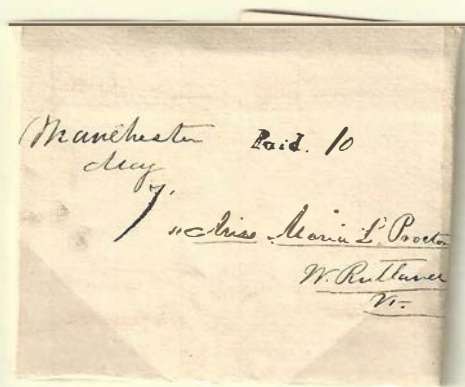 Manchester Paid. 10
Aug
7.
Miss Maria L. Proctor
W. Rutland
Vt.